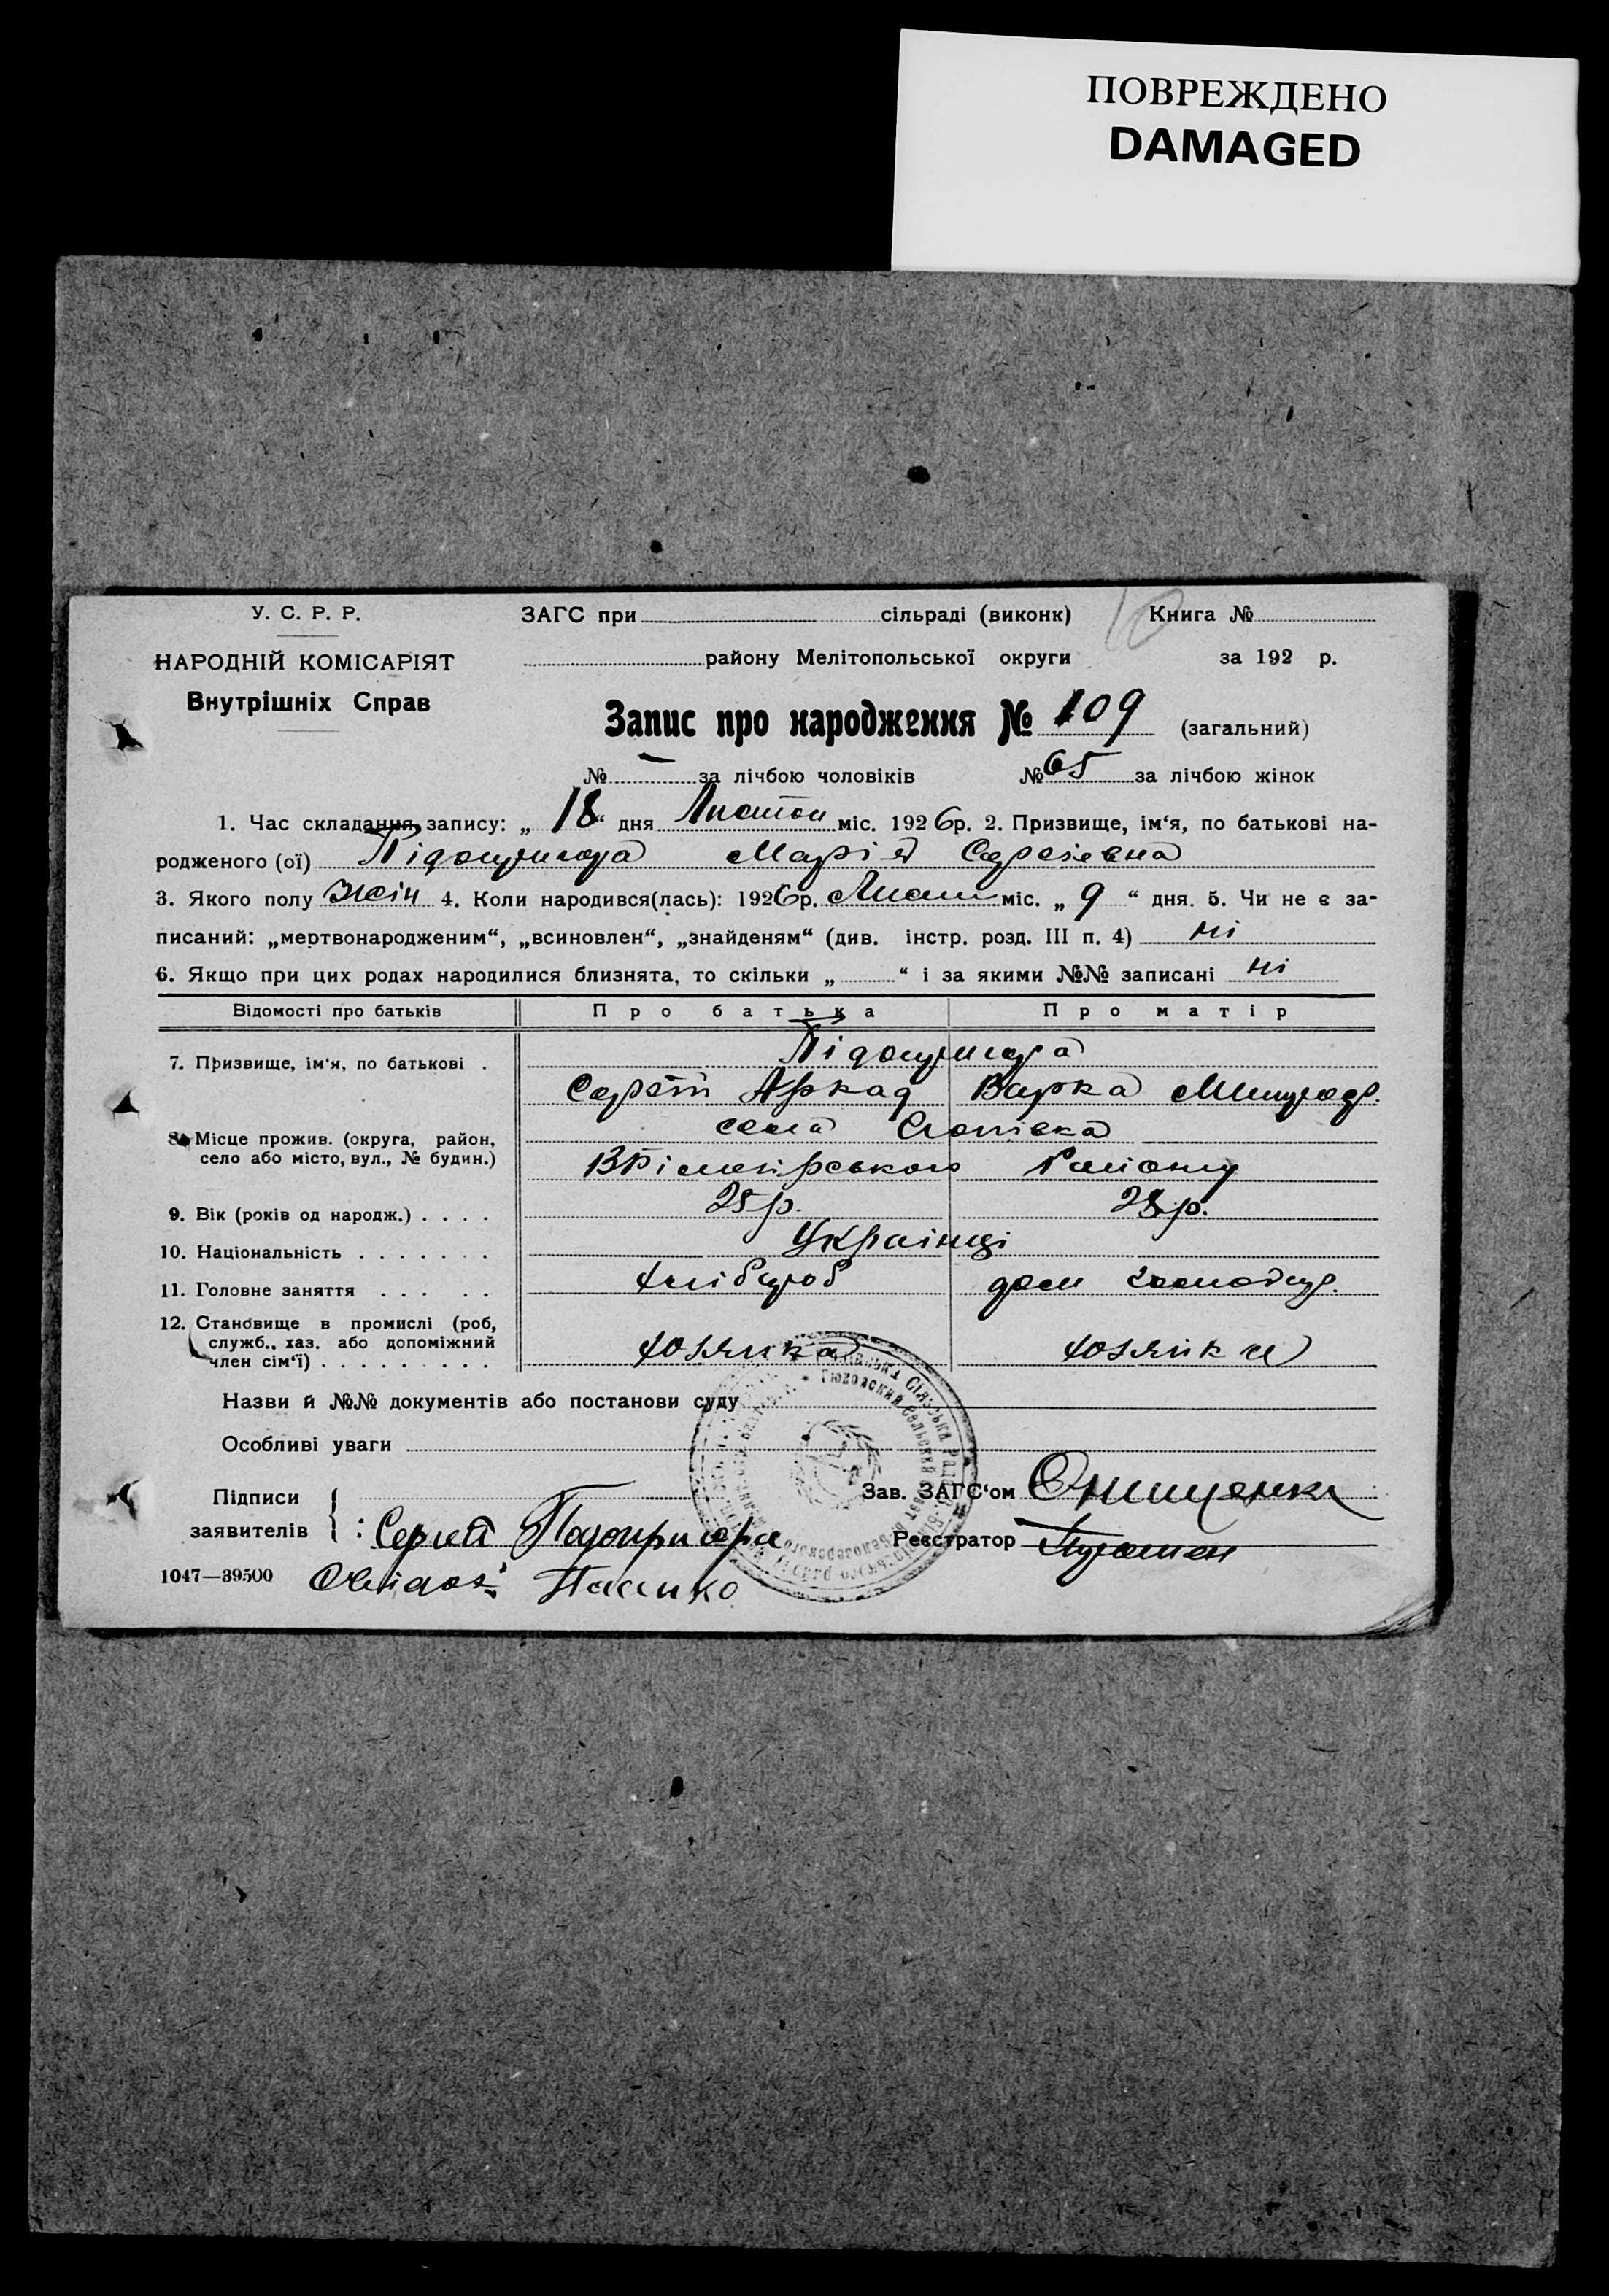 ПОВРЕЖДЕНО
DAMAGED
У. С. Р. Р.
ЗАГС при сільраді (виконк) Книга №
10
НАРОДНІЙ КОМІСАРІЯТ
району Мелітопольської округи за 192 р.
Внутрішніх Справ
Запис про народження № 109 (загальний)
№ — за лічбою чоловіків № 65 за лічбою жінок
1. Час складання запису: „ 18 “ дня Листоп міс. 1926р. 2. Призвище, ім‘я, по батькові на-
родженого (ої) Підопригора Марія Сергієвна
3. Якого полу жін 4. Коли народився(лась): 1926р. Лист міс. „ 9 “ дня. 5. Чи не є за-
писаний: „мертвонародженим“, „всиновлен“, „знайденям“ (див. інстр. розд. III п. 4) ні
6. Якщо при цих родах народилися близнята, то скільки „ “ і за якими №№ записані ні
Відомості про батьків Про батька Про матір
Підопригора
7. Призвище, ім‘я, по батькові .
Сергій Аркад Варка
села
8. Місце прожив. (округа, район,
село або місто, вул., № будин.)
Району
9. Вік (років од народж.) . . . . 25 р. 28 р.
10. Національність . . . . . . . Українці
11. Головне заняття . . . . . хлібороб дом господар.
12. Становище в промислі (роб,
служб., хаз. або допоміжний
член сім‘ї) . . . . . . . . . хозяйка хозяйка
Назви й №№ документів або постанови суду
Особливі уваги
Підписи
заявителів
Зав. ЗАГС‘ом Онищенко
: Сергей Подопригора
Реєстратор
1047—39500